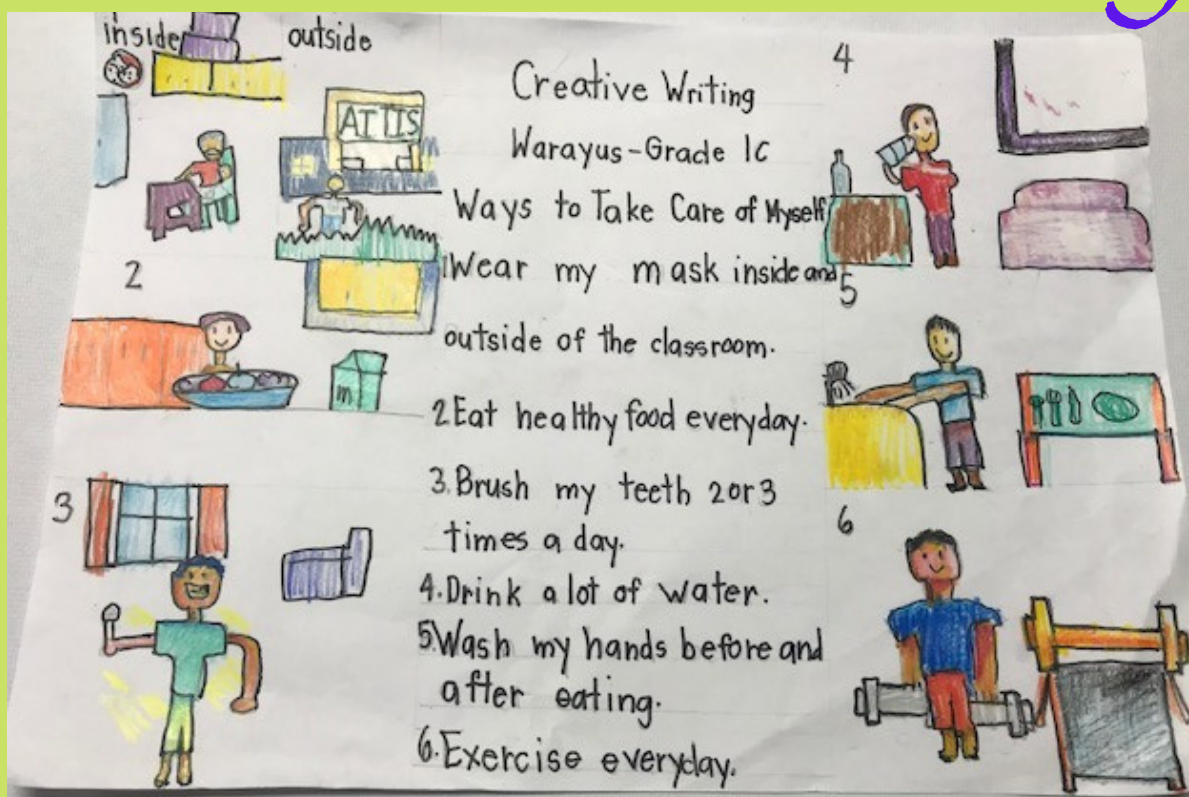 inside outside
ATTIS
2
m
3
Creative Writing
Warayus-Grade 1C
Ways to Take Care of Myself
1Wear my mask inside and
outside of the classroom.
2Eat healthy food everyday.
3.Brush my teeth 2or3
times a day.
4.Drink a lot of water.
5Wash my hands before and
after eating.
6.Exercise everyday.
4
5
6